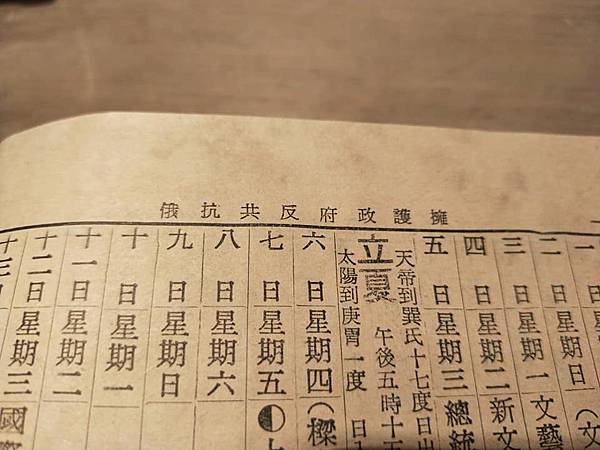 擁護政府反共抗俄
一日星
二日星期日(文
三日星期一文藝
四日星期二新文
五日星期三總統
天帝到巽氏十七度日出
立夏 午後五時十五
太陽到庚胃一度 日入
六日星期四(樑
七日星期五◐
八日星期六
九日星期日
十日星期一
十一日星期二
十二日星期三國際
十三日